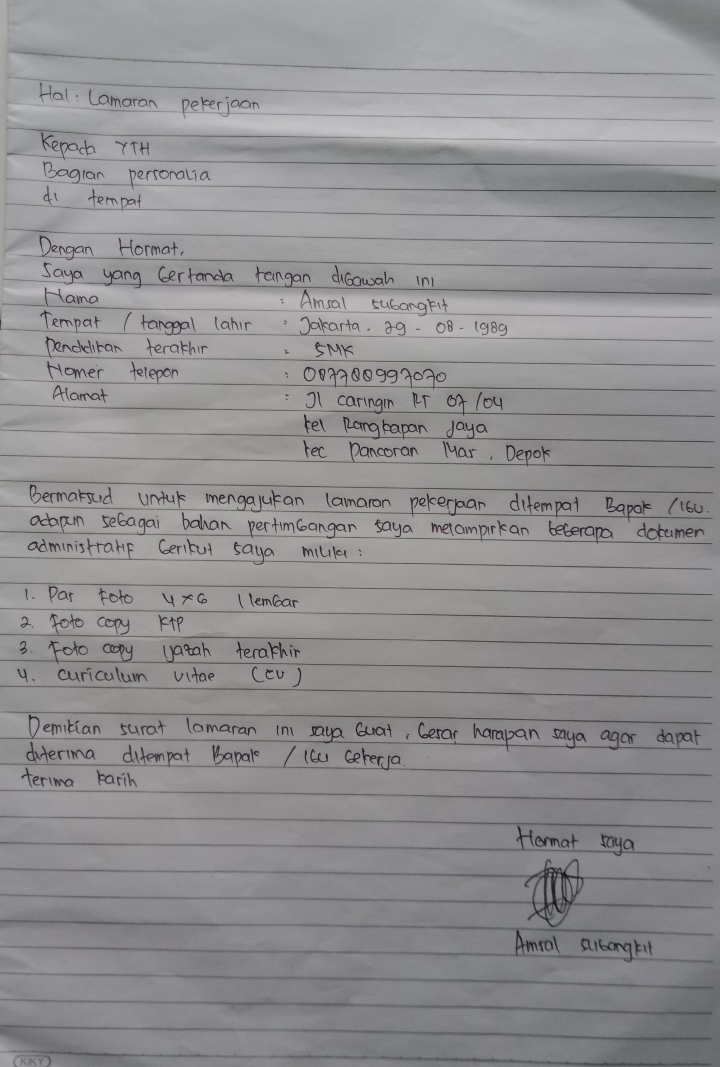 Hal: Lamaran pekerjaan
Kepada YTH
Bagian personalia
di tempat
Dengan Hormat,
Saya yang bertanda tangan dibawah ini
Nama : Amsal subangkit
Tempat / tanggal lahir : Jakarta, 29 - 08 - 1989
Pendidikan terakhir : SMK
Nomer telepon : 087788997070
Alamat : Jl caringin RT 07/04
kel Rangkapan Jaya
kec Pancoran Mas, Depok
Bermaksud untuk mengajukan lamaran pekerjaan ditempat Bapak /Ibu.
adapun sebagai bahan pertimbangan saya melampirkan beberapa dokumen
administratif berikut saya miliki :
1. Pas Foto 4x6 1 lembar
2. Foto copy KTP
3. Foto copy ijazah terakhir
4. curiculum vitae (CV)
Demikian surat lamaran ini saya buat, besar harapan saya agar dapat
diterima ditempat Bapak / Ibu bekerja.
terima kasih
Hormat saya
Amsal subangkit
KKY